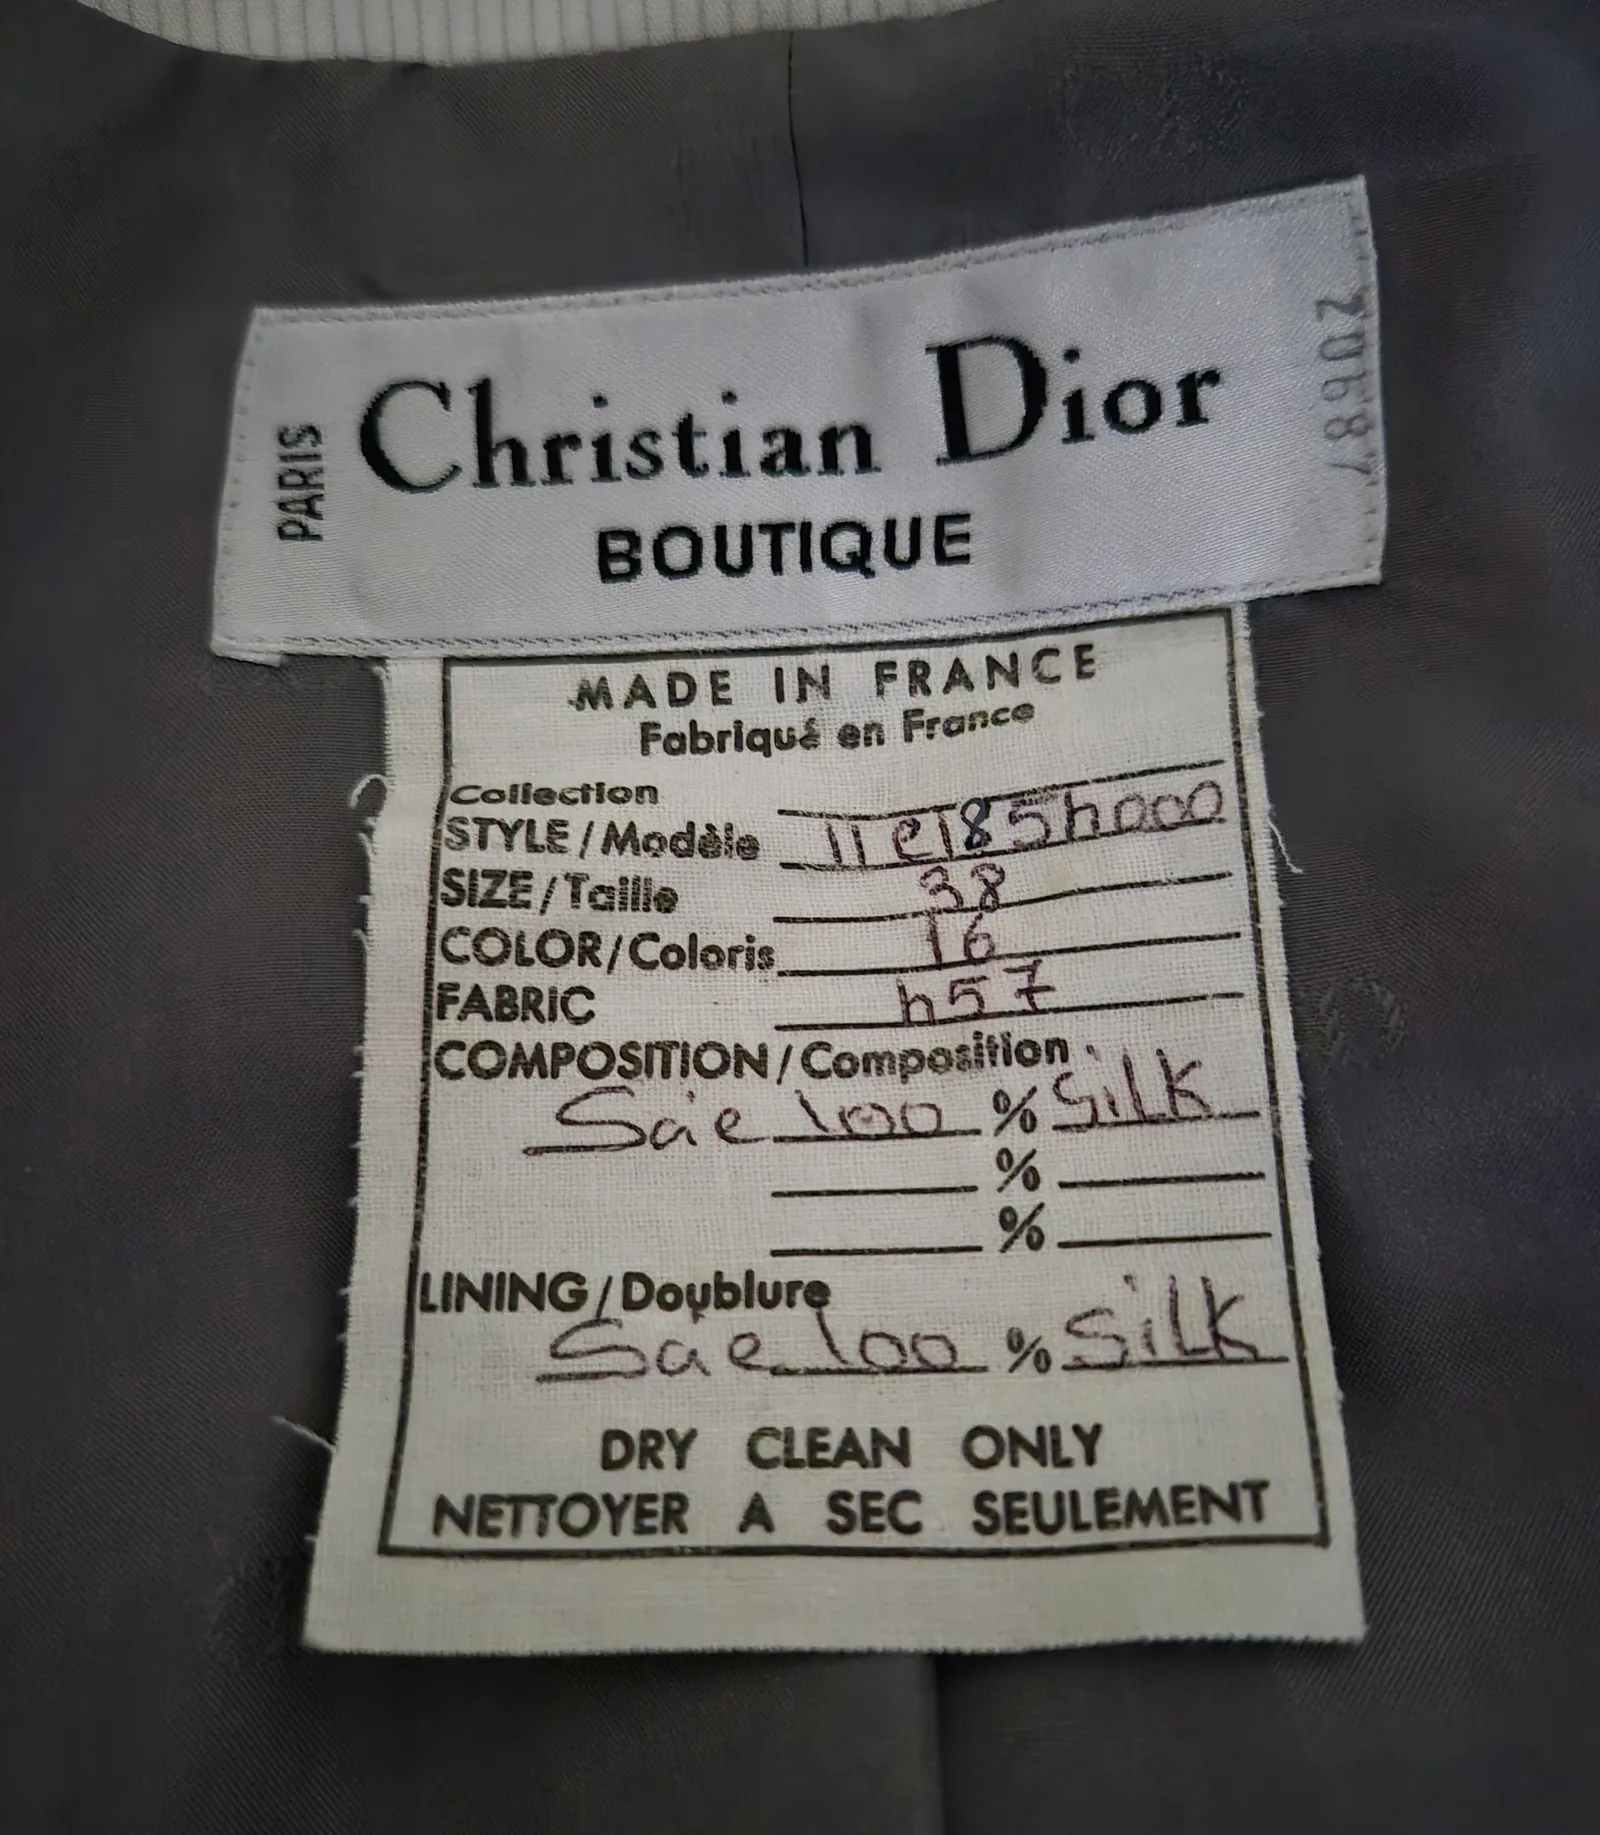 PARIS
Christian Dior
BOUTIQUE
20687
MADE IN FRANCE
Fabriqué en France
Collection
STYLE/Modèle 11e185h000
SIZE/Taille 38
COLOR/Coloris 16
FABRIC h57
COMPOSITION/Composition
Soie 100 % SiLK
%
%
LINING/Doublure
Soie 100 % SiLK
DRY CLEAN ONLY
NETTOYER A SEC SEULEMENT